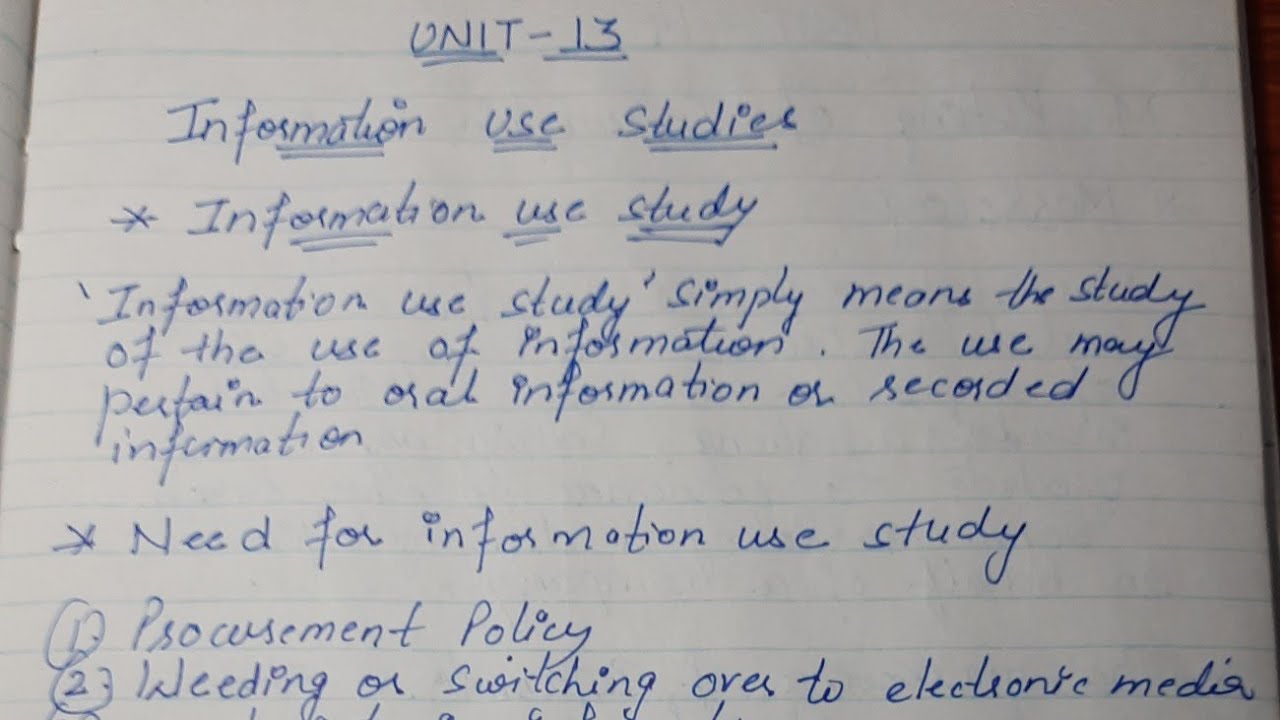 UNIT-13
Information use studies
* Information use study
'Information use study' simply means the study
of the use of information. The use may
pertain to oral information or recorded
information
* Need for information use study
1. Procurement Policy
2. Weeding or switching over to electronic media